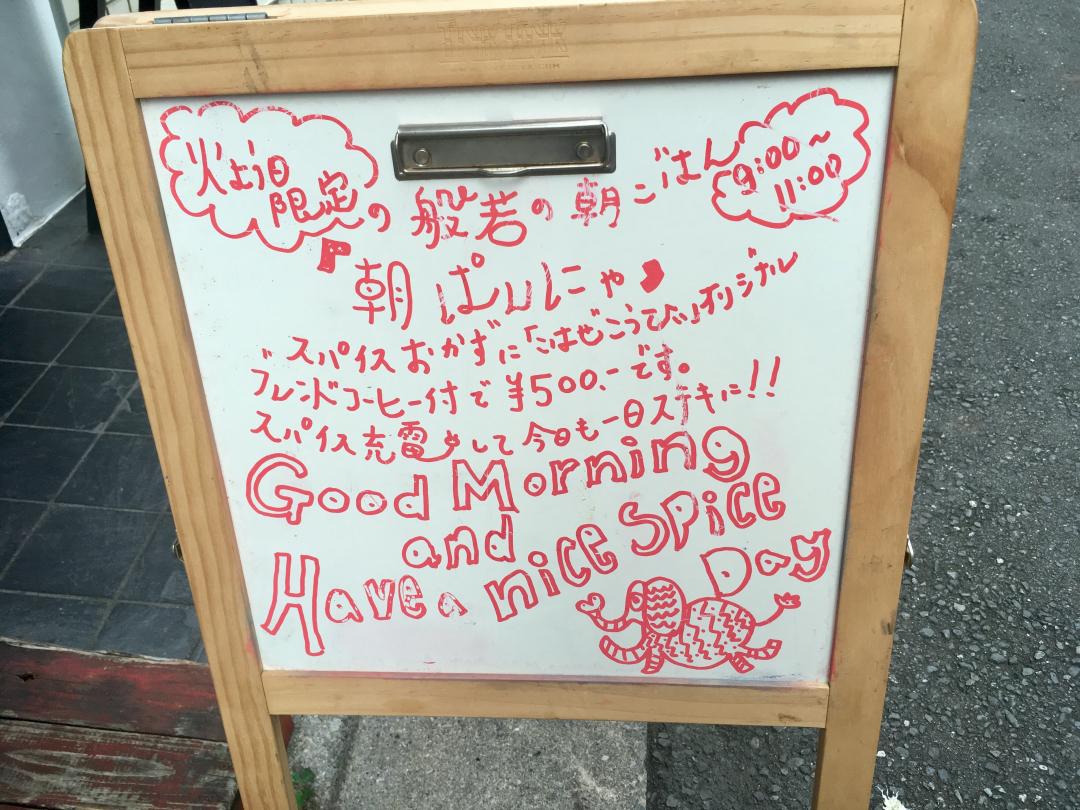 火よう日
限定
の般若の朝ごはん
9:00~
11:00
『朝ぱいにゃ』
スパイスおかずに「こはぜこうひい」オリジナル
ブレンドコーヒー付で¥500.-です。
スパイス充電して今日も一日ステキに!!
Good Morning
and
Have a nice Spice
Day